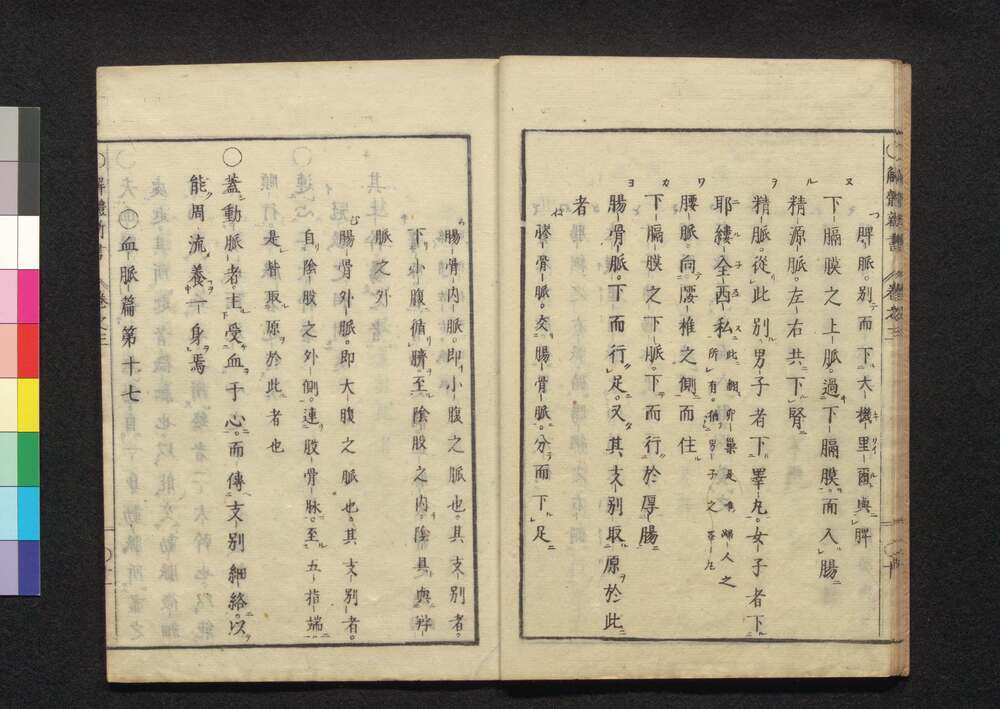 脾脈。別而下大機里爾與脾
下膈膜之上脈。過下膈膜。而入腸
精源脈。左右共下腎
精脈。從此別。男子者下睪丸。女子者下
耶縷全西私此翻卵巢是乃婦人之所有。猶男子之睪丸
腰脈。向腰椎之側而住
下膈膜之下脈。下而行於厚腸
腸骨脈。下而行足。又其支別取原於此
者
䯊骨脈。交腸骨脈。分而下足
腸骨內脈。即小腹之脈也。其支別者。
下小腹循臍至陰股之內。陰具與
脈之外
腸骨外脈。即大腹之脈也。其支別者。
自陰股之外側。連股骨脈。至五指端。
是皆取原於此者也
〇蓋動脈者。主受血于心。而傳支別細絡。以
能周流養一身焉
血脈篇第十七
解體新書
卷之三